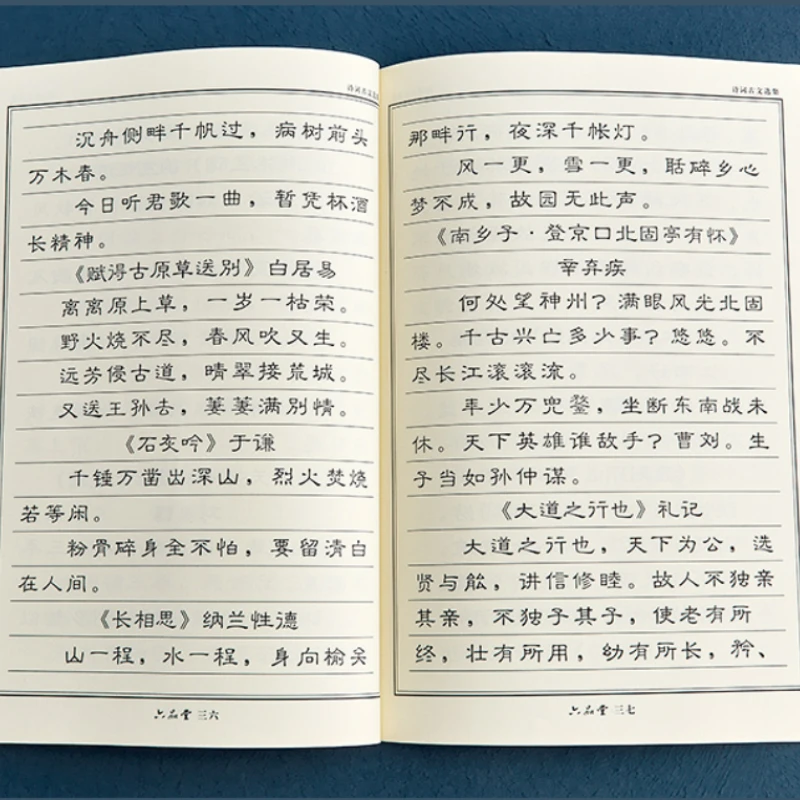 诗词古文选集
沉舟侧畔千帆过，病树前头
万木春。
今日听君歌一曲，暂凭杯酒
长精神。
《赋得古原草送别》白居易
离离原上草，一岁一枯荣。
野火烧不尽，春风吹又生。
远芳侵古道，晴翠接荒城。
又送王孙去，萋萋满别情。
《石灰吟》于谦
千锤万凿出深山，烈火焚烧
若等闲。
粉骨碎身全不怕，要留清白
在人间。
《长相思》纳兰性德
山一程，水一程，身向榆关
六品堂 三六
诗词古文选集
那畔行，夜深千帐灯。
风一更，雪一更，聒碎乡心
梦不成，故园无此声。
《南乡子·登京口北固亭有怀》
辛弃疾
何处望神州？满眼风光北固
楼。千古兴亡多少事？悠悠。不
尽长江滚滚流。
年少万兜鍪，坐断东南战未
休。天下英雄谁敌手？曹刘。生
子当如孙仲谋。
《大道之行也》礼记
大道之行也，天下为公，选
贤与能，讲信修睦。故人不独亲
其亲，不独子其子，使老有所
终，壮有所用，幼有所长，矜、
六品堂 三七